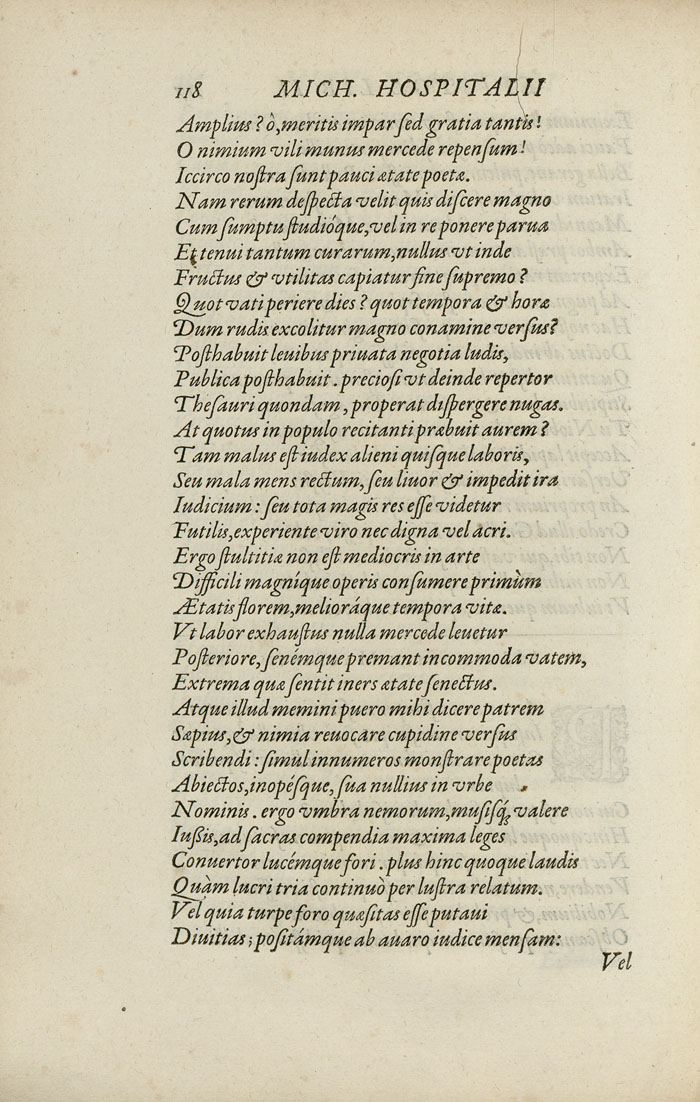 118 MICH. HOSPITALII
Amplius? ò, meritis impar sed gratia tantis!
O nimium vili munus mercede repensum!
Iccirco nostra sunt pauci ætate poetæ.
Nam rerum despecta velit quis discere magno
Cum sumptu studióque, vel in re ponere parua
Et tenui tantum curarum, nullus vt inde
Fructus & vtilitas capiatur fine supremo?
Quot vati periere dies? quot tempora & horæ
Dum rudis excolitur magno conamine versus?
Posthabuit leuibus priuata negotia ludis,
Publica posthabuit. preciosi vt deinde repertor
Thesauri quondam, properat dispergere nugas.
At quotus in populo recitanti præbuit aurem?
Tam malus est iudex alieni quisque laboris,
Seu mala mens rectum, seu liuor & impedit ira
Iudicium: seu tota magis res esse videtur
Futilis, experiente viro nec digna vel acri.
Ergo stultitiæ non est mediocris in arte
Difficili magníque operis consumere primùm
Ætatis florem, melioráque tempora vitæ.
Vt labor exhaustus nulla mercede leuetur
Posteriore, senémque premant incommoda vatem,
Extrema quæ sentit iners ætate senectus.
Atque illud memini puero mihi dicere patrem
Sæpius, & nimia reuocare cupidine versus
Scribendi: simul innumeros monstrare poetas
Abiectos, inopésque, sua nullius in vrbe
Nominis. ergo vmbra nemorum, musisq; valere
Iußis, ad sacras compendia maxima leges
Conuertor lucémque fori. plus hinc quoque laudis
Quàm lucri tria continuò per lustra relatum.
Vel quia turpe foro quæsitas esse putaui
Diuitias; positámque ab auaro iudice mensam:
Vel